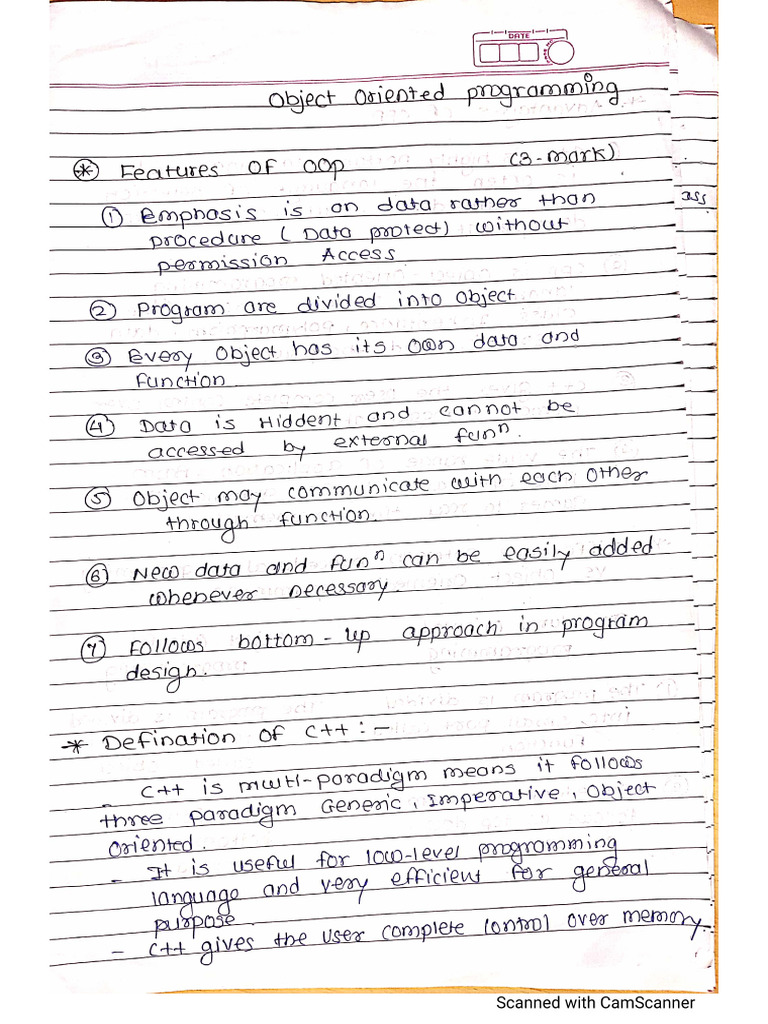 DATE
Object Oriented Programming
* Features OF OOP (3-mark)
① Emphasis is on data rather than
procedure ( Data protect) without
permission Access.
② Program are divided into Object
③ Every Object has its own data and
function
④ Data is Hiddent and cannot be
accessed by external funⁿ.
⑤ Object may communicate with each other
through function.
⑥ New data and funⁿ can be easily added
whenever necessary.
⑦ Follows bottom-up approach in program
design.
* Defination of C++ :-
- C++ is multi-paradigm means it follows
three paradigm Generic, Imperative, Object
Oriented.
- It is useful for low-level programming
language and very efficient for general
purpose
- C++ gives the user complete control over memory.
Scanned with CamScanner